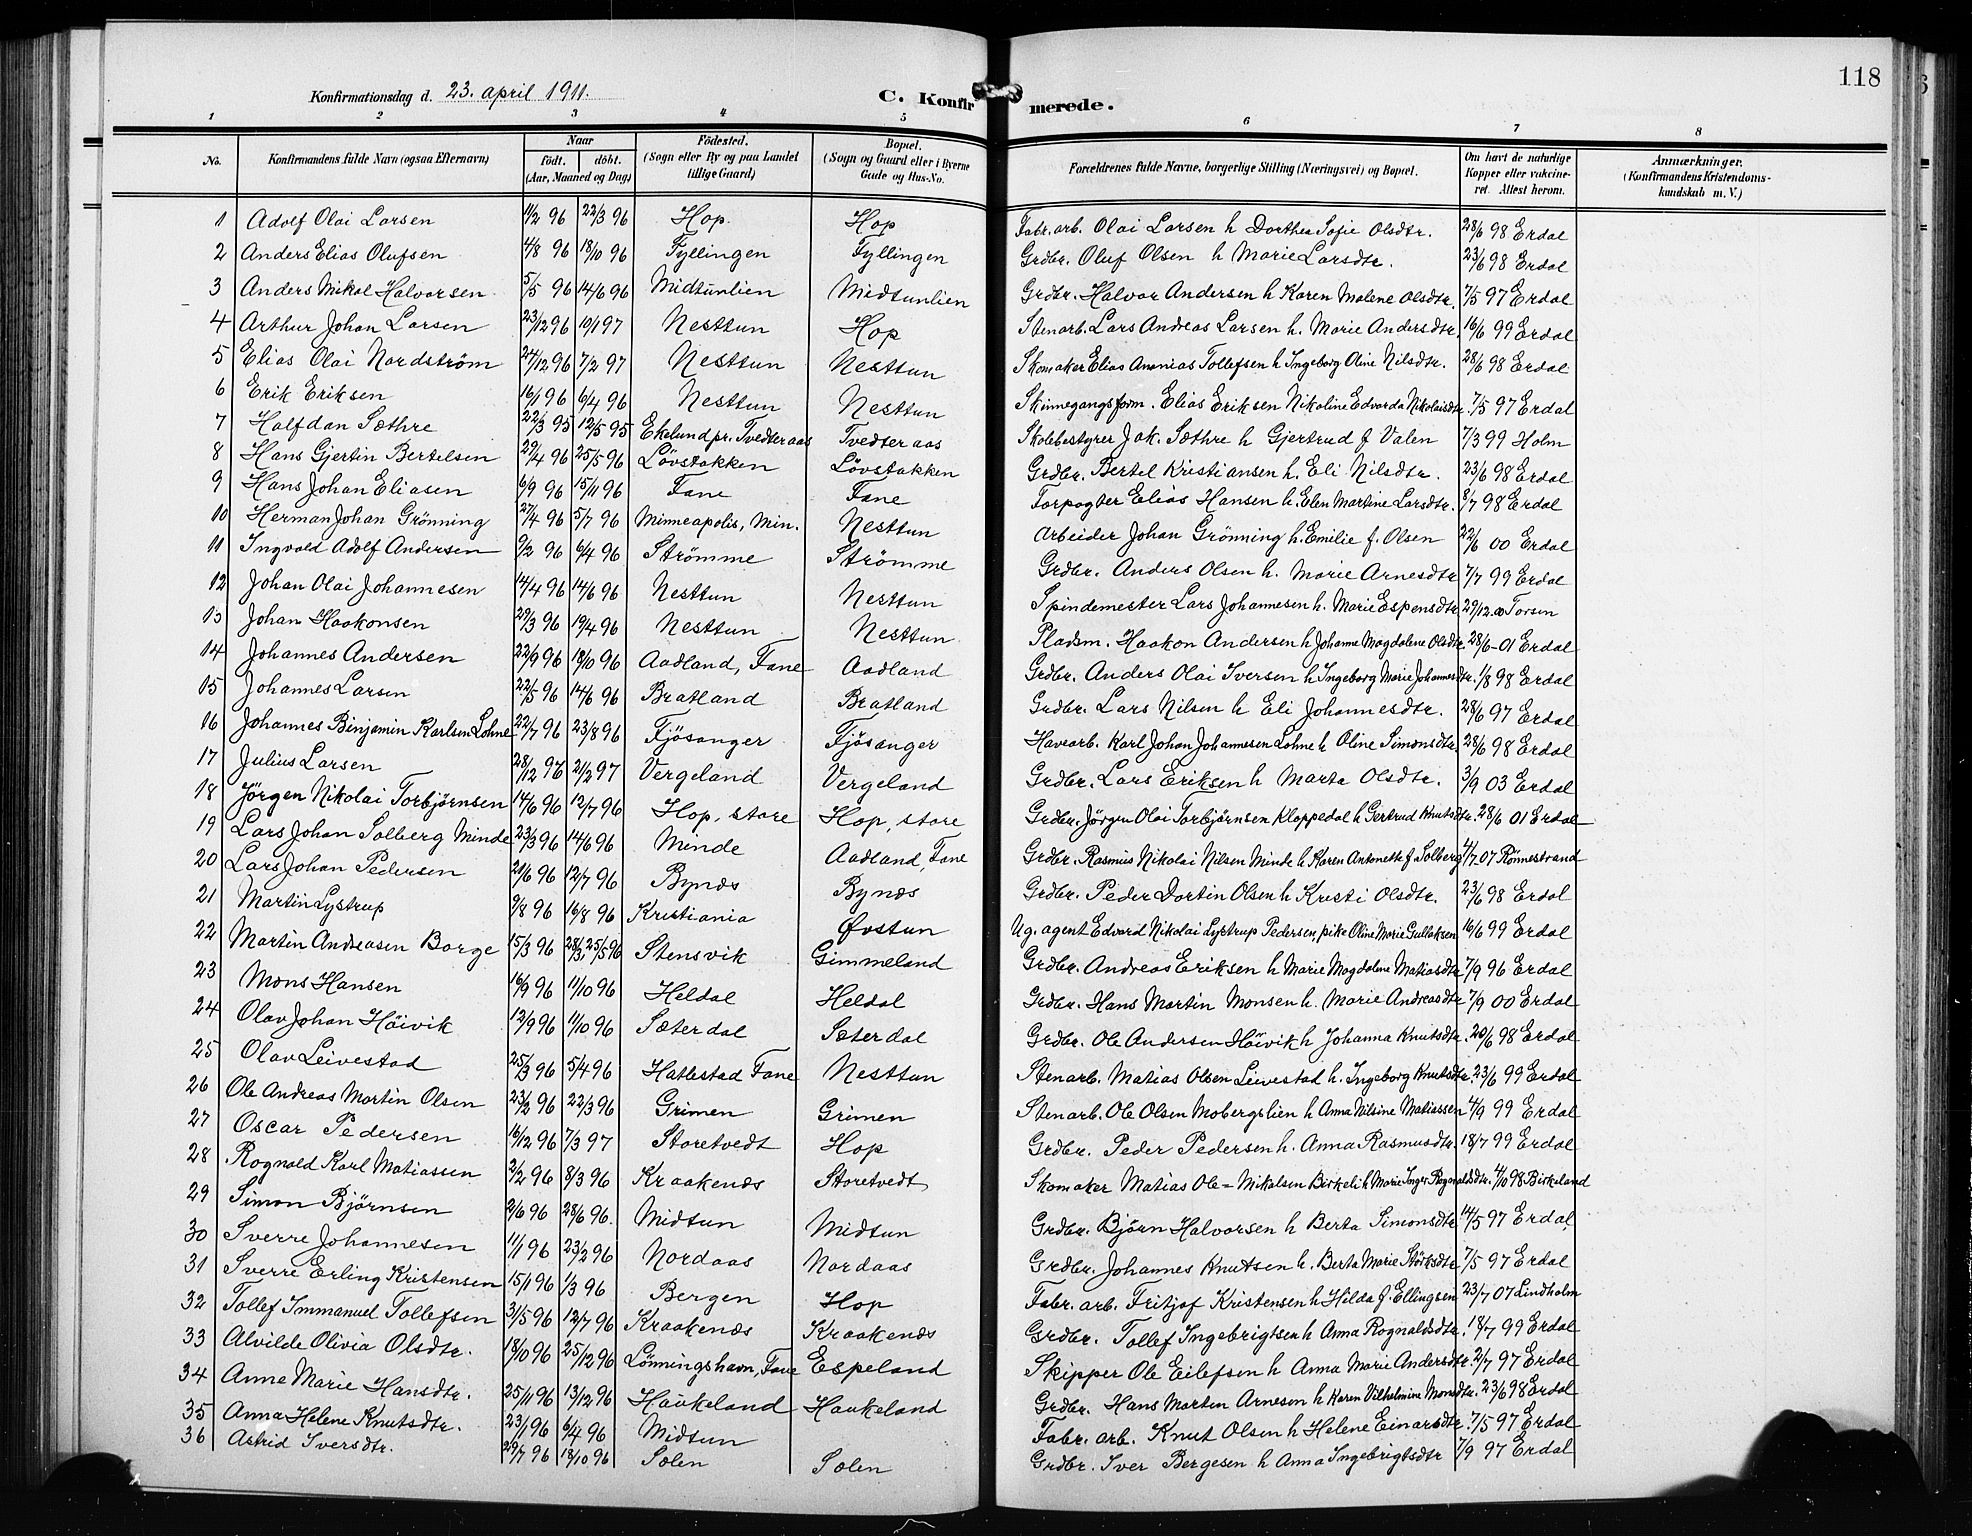 118
Konfirmationsdag d. 23. april 1911. C. Konfirmerede.
1 2 3 4 5 6 7 8
No. Konfirmandens fulde Navn (ogsaa Efternavn) Naar født. døbt. (Aar, Maaned og Dag) Fødested. (Sogn eller By og paa Landet tillige Gaard) Bopæl. (Sogn og Gaard eller i Byerne Gade og Hus-No. Forældrenes fulde Navne, borgerlige Stilling (Næringsvei) og Bopæl. Om havt de naturlige Kopper eller vakcineret. Attest herom. Anmærkninger. (Konfirmandens Kristendomskundskab m. V.)
1 Adolf Olai Larsen 11/2 96 22/3 96 Hop. Hop Fabr. arb. Olai Larsen h Dorthea Sofie Olsdtr. 28/6 98 Erdal
2 Anders Elias Olufsen 4/8 96 18/10 96 Fyllingen Fyllingen Grdbr. Oluf Olsen h Marie Larsdtr. 23/6 98 Erdal
3 Anders Mikal Halvorsen 5/5 96 14/6 96 Midtunlien Midtunlien Grdbr. Halvor Andersen h Karen Malene Olsdtr. 7/5 97 Erdal
4 Arthur Johan Larsen 23/12 96 10/1 97 Nesttun Hop Stenarb. Lars Andreas Larsen h. Marie Andersdtr. 16/6 99 Erdal
5 Elias Olai Nordström 24/12 96 7/2 97 Nesttun Nesttun Skomaker Elias Ananias Tollefsen h Ingeborg Oline Nilsdtr. 28/6 98 Erdal
6 Erik Eriksen 16/1 96 6/4 96 Nesttun Nesttun Skinnegangsform. Elias Eriksen Nikoline Edvarda Nikolaisdtr. 7/5 97 Erdal
7 Halfdan Sæthre 22/3 95 12/5 95 Ekelund pr. Tvedteraas Tvedteraas Skolebestyrer Jak. Sæthre h Gjertrud f Valen 7/3 99 Holm
8 Hans Gjertin Bertelsen 29/4 96 25/5 96 Lövstakken Lövstakken Grdbr. Bertel Kristiansen h. Eli Nilsdtr. 23/6 98 Erdal
9 Hans Johan Eliasen 6/9 96 15/11 96 Fane Fane Forpagter Elias Hansen h. Elen Martine Larsdtr. 8/7 98 Erdal
10 Herman Johan Grönning 27/4 96 5/7 96 Minneapolis, Min. Nesttun Arbeider Johan Grönning h. Emilie f. Olsen 22/6 00 Erdal
11 Ingvald Adolf Andersen 9/2 96 6/4 96 Strömme Strömme Grdbr. Anders Olsen h. Marie Arnesdtr 7/7 99 Erdal
12 Johan Olai Johannesen 14/4 96 14/6 96 Nesttun Nesttun Spindemester Lars Johannesen h. Marie Espensdtr. 29/12 00 Torsen
13 Johan Haakonsen 29/3 96 19/4 96 Nesttun Nesttun Pladsm. Haakon Andersen h Johanne Magdalene Olsdtr. 28/6-01 Erdal
14 Johannes Andersen 22/9 96 18/10 96 Aadland, Fane Aadland Grdbr. Anders Olai Iversen h Ingeborg Marie Johannesdtr. 1/8 98 Erdal
15 Johannes Larsen 22/5 96 14/6 96 Bratland Bratland Grdbr. Lars Nilsen h Eli Johannesdtr. 28/6 97 Erdal
16 Johannes Binjamin Karlsen Lohne 22/7 96 23/8 96 Fjösanger Fjösanger Havearb. Karl Johan Johannesen Lohne h Oline Simonsdtr. 28/6 98 Erdal
17 Julius Larsen 28/12 96 21/2 97 Vergeland Vergeland Grdbr. Lars Eriksen h Marta Olsdtr. 3/9 03 Erdal
18 Jörgen Nikolai Torbjörnsen 14/6 96 12/7 96 Hop, store Hop, store Grdbr. Jörgen Olai Torbjörnsen Kloppedal h Gertrud Knutsdtr. 28/6 01 Erdal
19 Lars Johan Solberg Minde 23/3 96 14/6 96 Minde Aadland, Fane Grdbr. Rasmus Nikolai Nilsen Minde h Karen Antonette f Solberg 4/7 07 Rönnestrand
20 Lars Johan Pedersen 21/6 96 12/7 96 Bynæs Bynæs Grdbr. Peder Dortin Olsen h Kristi Olsdtr. 23/6 98 Erdal
21 Martin Lystrup 9/8 96 16/8 96 Kristiania Øvstun Ug. agent Edvard Nikolai Lystrup Pedersen, pike Oline Marie Gullaksen 16/6 99 Erdal
22 Martin Andreasen Borge 15/3 96 28/3, 25/5 96 Stensvik Gimmeland Grdbr. Andreas Eriksen h Marie Magdalene Matiasdtr 7/9 96 Erdal
23 Mons Hansen 16/9 96 11/10 96 Heldal Heldal Grdbr. Hans Martin Monsen h. Marie Andreasdtr 7/9 00 Erdal
24 Olav Johan Höivik 12/9 96 11/10 96 Sæterdal Sæterdal Grdbr. Ole Andersen Höivik h Johanna Knutsdtr. 20/6 98 Erdal
25 Olav Leivestad 25/3 96 5/4 96 Hatlestad Fane Nesttun Stenarb. Matias Olsen Leivestad h. Ingeborg Knutsdtr. 23/6 99 Erdal
26 Ole Andreas Martin Olsen 23/2 96 22/3 96 Grimen Grimen Stenarb. Ole Olsen Mobergslien h Anna Nilsine Matiassen 4/9 99 Erdal
27 Oscar Pedersen 16/12 96 7/3 97 Storetvedt Hop Grdbr. Peder Pedersen h. Anna Rasmusdtr. 18/7 99 Erdal
28 Rognald Karl Matiassen 2/2 96 8/3 96 Kraakenæs Storetvedt Skomaker Matias Ole= Mikalsen Birkeli h Marie Inger Rognaldsdtr. 4/10 98 Birkeland
29 Simon Björnsen 2/6 96 28/6 96. Midtun Midtun Grdbr. Björn Halvorsen h Berta Simonsdtr 14/5 97 Erdal
30 Sverre Johannesen 11/1 96 23/2 96 Nordaas Nordaas Grdbr. Johannes Knutsen h. Berta Marie Störksdtr 7/5 97 Erdal
31 Sverre Erling Kristensen 15/1 96 1/3 96 Bergen Hop Fabr. arb. Fritjof Kristensen h Hilda f. Ellingsen 23/7 07 Lindholm
32 Tollef Immanuel Tollefsen 31/5 96 12/7 96 Kraakenæs Kraakenæs Grdbr. Tollef Ingebrigtsen h Anna Rognaldsdtr. 18/7 99 Erdal
33 Alvilde Olivia Olsdtr. 18/10 96 25/12 96 Lönningshavn, Fane Espeland Skipper Ole Eilefsen h Anna Marie Andersdtr. 2/7 97 Erdal
34 Anne Marie Hansdtr. 25/11 96 13/12 96 Haukeland Haukeland Grdbr. Hans Martin Arneson h Karen Vilhelmine Monsdtr. 23/6 98 Erdal
35 Anna Helene Knutsdtr. 23/1 96 6/4 96 Midtun Fabr. arb. Knut Olsen h Helene Einarsdtr. 7/5 97 Erdal
36 Astrid Iversdtr. 29/7 96 13/10 96 Sælen Sælen Grdbr. Iver Bergesen h Anna Ingebrigtsdtr 7/9 97 Erdal